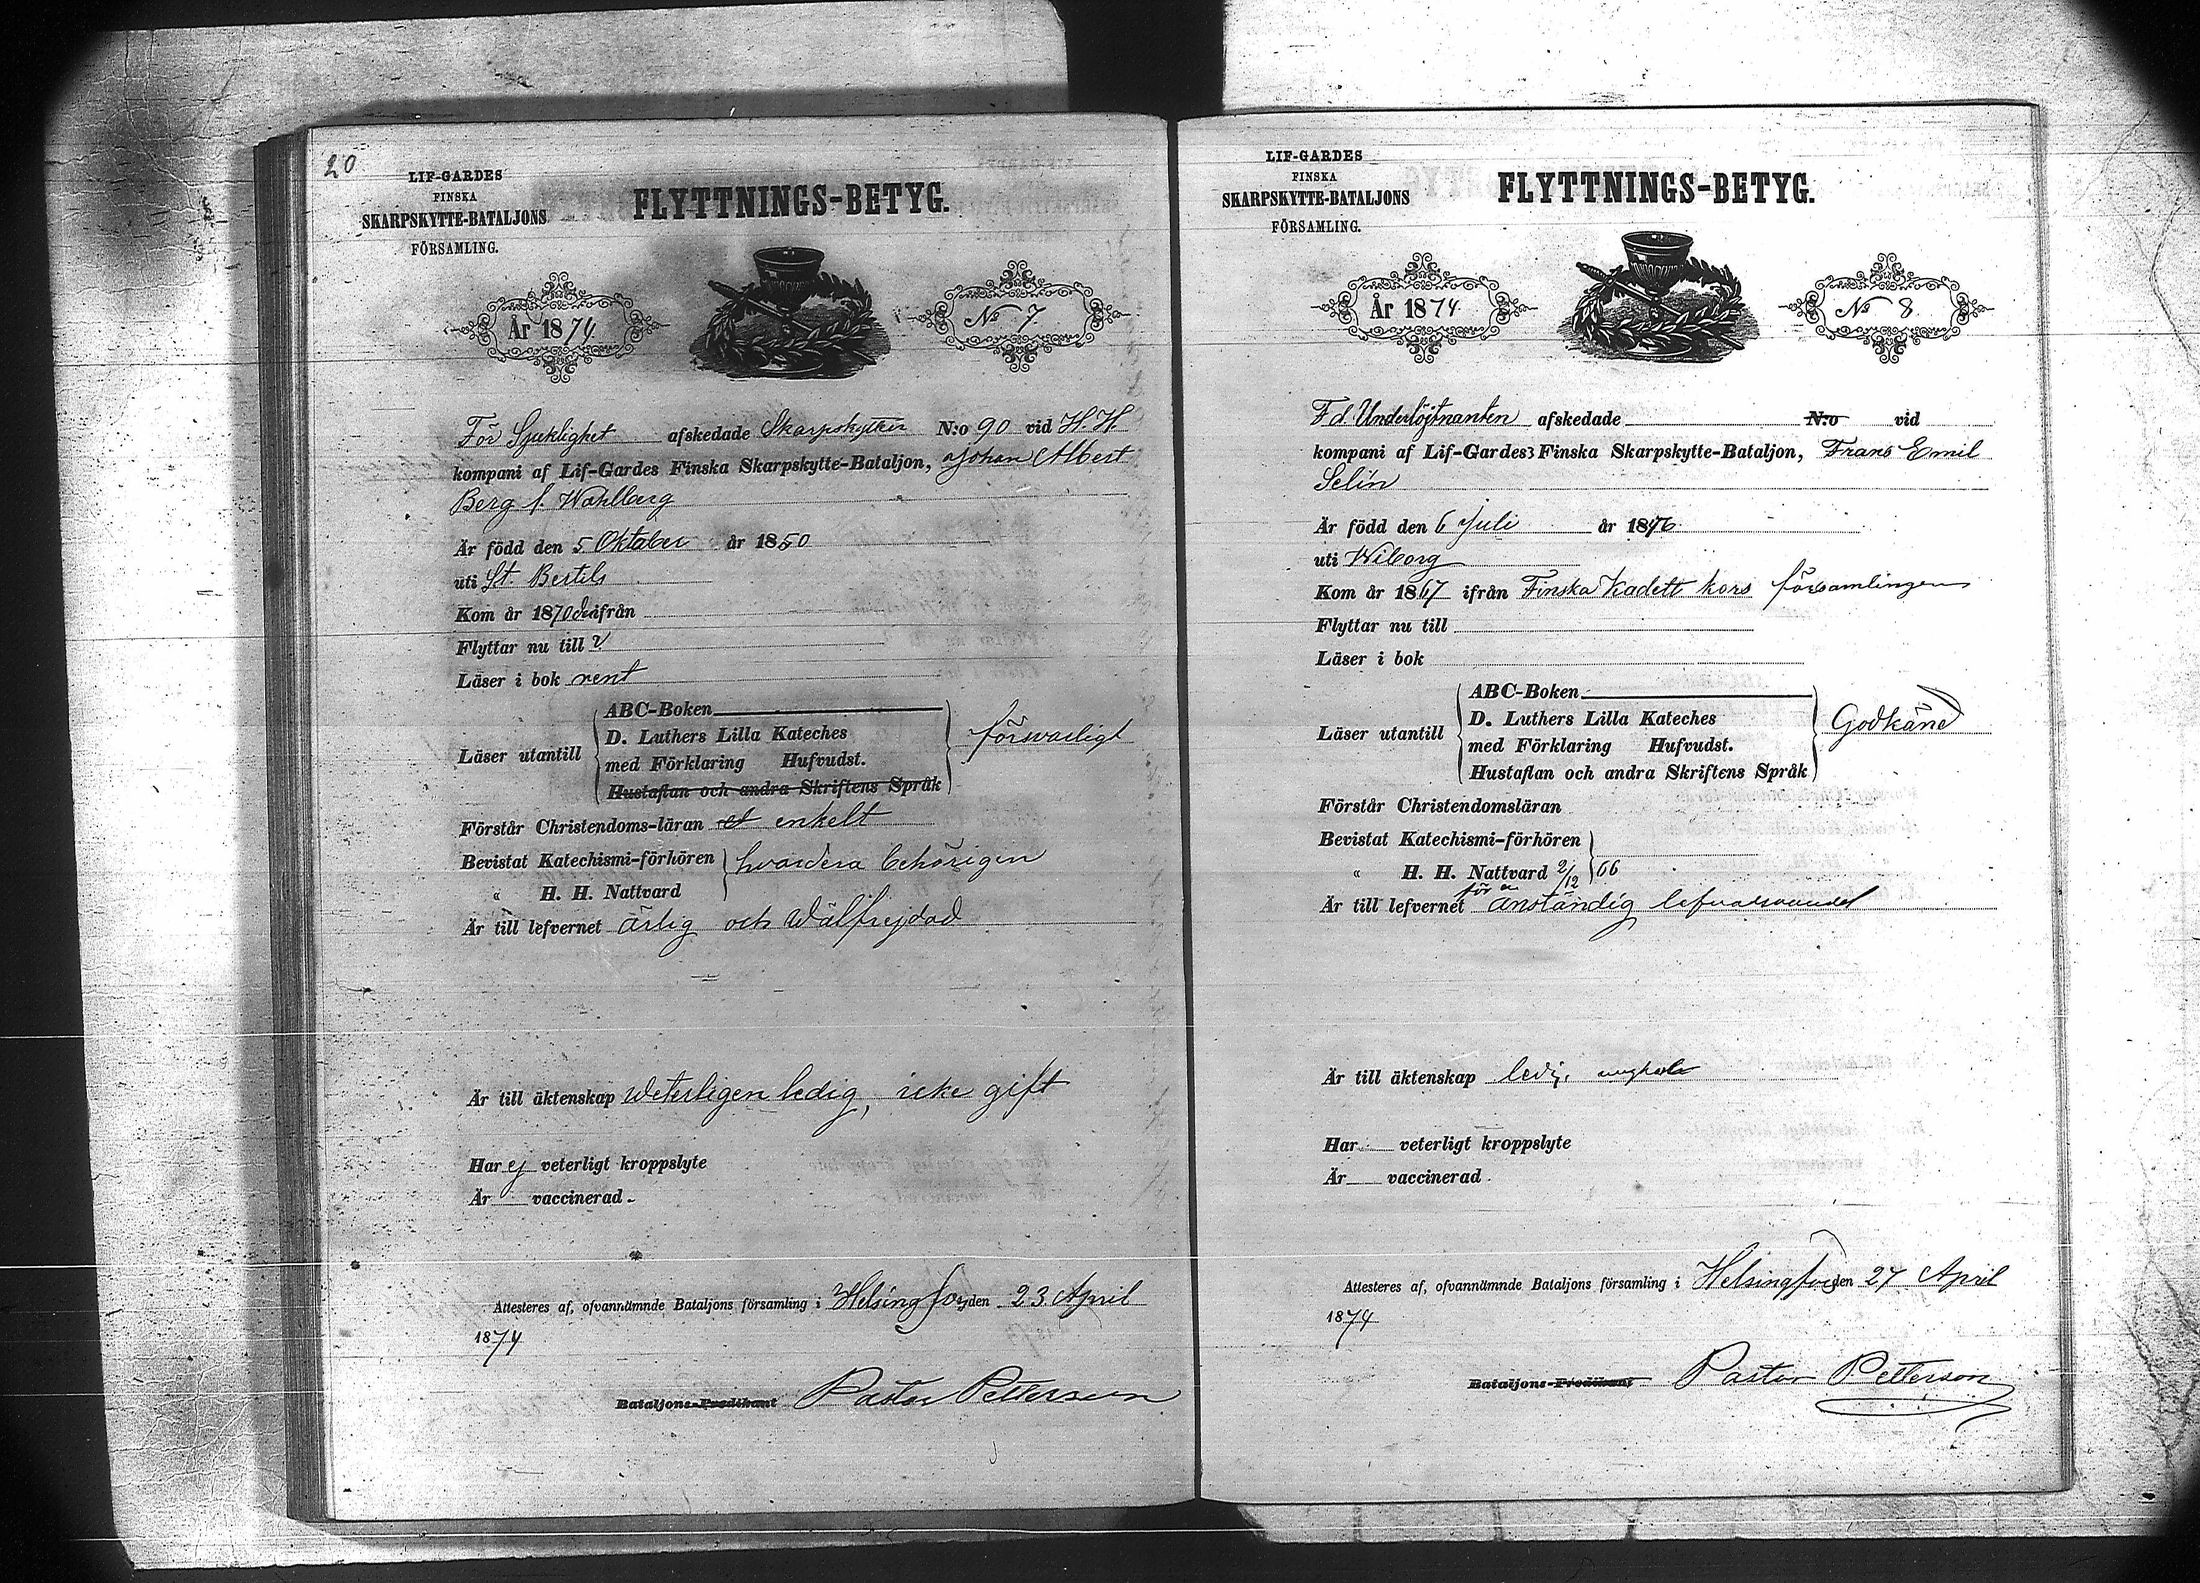 20
LIF-GARDES
FINSKA
SKARPSKYTTE-BATALJONS
FÖRSAMLING.
FLYTTNINGS-BETYG.
År 1874
No 7
För Sjuklighet afskedade Skarpskytten N:o 90 vid H. H.
kompani af Lif-Gardes Finska Skarpskytte-Bataljon, Johan Albert
Berg f. Wahlberg
Är född den 5 Oktober år 1850
uti St. Bertils
Kom år 1870 ifrån
Flyttar nu till
Läser i bok rent
Läser utantill
ABC-Boken
D. Luthers Lilla Kateches
med Förklaring Hufvudst.
Hustaflan och andra Skriftens Språk
försvarligt
Förstår Christendoms-läran enkelt
Bevistat Katechismi-förhören
" H. H. Nattvard
hvardera behörigen
Är till lefvernet ärlig och wälfrejdad
Är till äktenskap weterligen ledig, icke gift
Har ej veterligt kroppslyte
Är vaccinerad
Attesteres af, ofvannämnde Bataljons församling i Helsingfors den 23 April
1874
Bataljons-Predikant Pastor Petterson
LIF-GARDES
FINSKA
SKARPSKYTTE-BATALJONS
FÖRSAMLING.
FLYTTNINGS-BETYG.
År 1874
No 8
F d. Underlöjtnanten afskedade N:o vid
kompani af Lif-Gardes Finska Skarpskytte-Bataljon, Frans Emil
Selin
Är född den 6 Juli år 1846
uti Wiborg
Kom år 1867 ifrån Finska Kadett kors församlingen
Flyttar nu till
Läser i bok
Läser utantill
ABC-Boken
D. Luthers Lilla Kateches
med Förklaring Hufvudst.
Hustaflan och andra Skriftens Språk
Godkänd
Förstår Christendomsläran
Bevistat Katechismi-förhören
" H. H. Nattvard 2/12 66
Är till lefvernet för anständig lefvadsvandel
Är till äktenskap ledig,
Har veterligt kroppslyte
Är vaccinerad
Attesteres af, ofvannämnde Bataljons församling i Helsingfors den 27 April
1874
Bataljons-Predikant Pastor Petterson